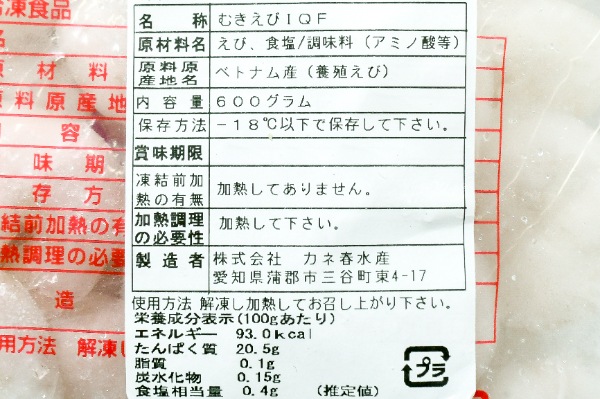 冷凍食品
名
原材料
原料原産地
内容
味期
存方
結前加熱の有
熱調理の必要
造
用方法 解凍し
名称 むきえびIQF
原材料名 えび、食塩/調味料(アミノ酸等)
原料原産地名 ベトナム産(養殖えび)
内容量 600グラム
保存方法 -18℃以下で保存して下さい。
賞味期限
凍結前加熱の有無 加熱してありません。
加熱調理の必要性 加熱して下さい。
製造者 株式会社 カネ春水産
愛知県蒲郡市三谷町東4-17
使用方法 解凍し加熱してお召し上がり下さい。
栄養成分表示(100gあたり)
エネルギー 93.0kcal
たんぱく質 20.5g
脂質 0.1g
炭水化物 0.15g
食塩相当量 0.4g (推定値)
プラ